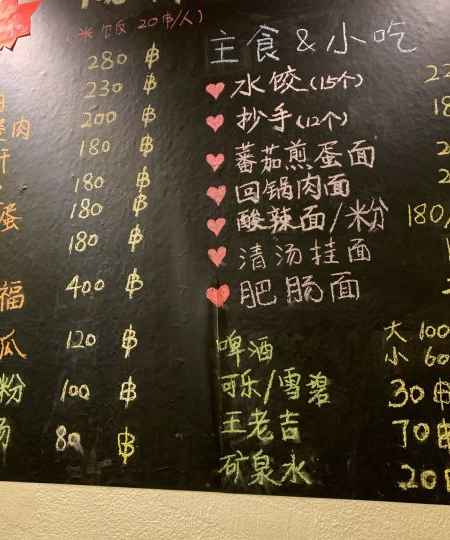 (米饭 20฿/人)
280 ฿
230 ฿
肉 200 ฿
肝 180 ฿
180 ฿
蛋 180 ฿
180 ฿
福 400 ฿
瓜 120 ฿
粉 100 ฿
汤 80 ฿
主食 & 小吃
水饺 (15个) 22
抄手 (12个) 18
蕃茄煎蛋面 2
回锅肉面 2
酸辣面/粉 180/
清汤挂面
肥肠面
啤酒 大 100
小 60
可乐/雪碧 30฿
王老吉 70฿
矿泉水 20฿